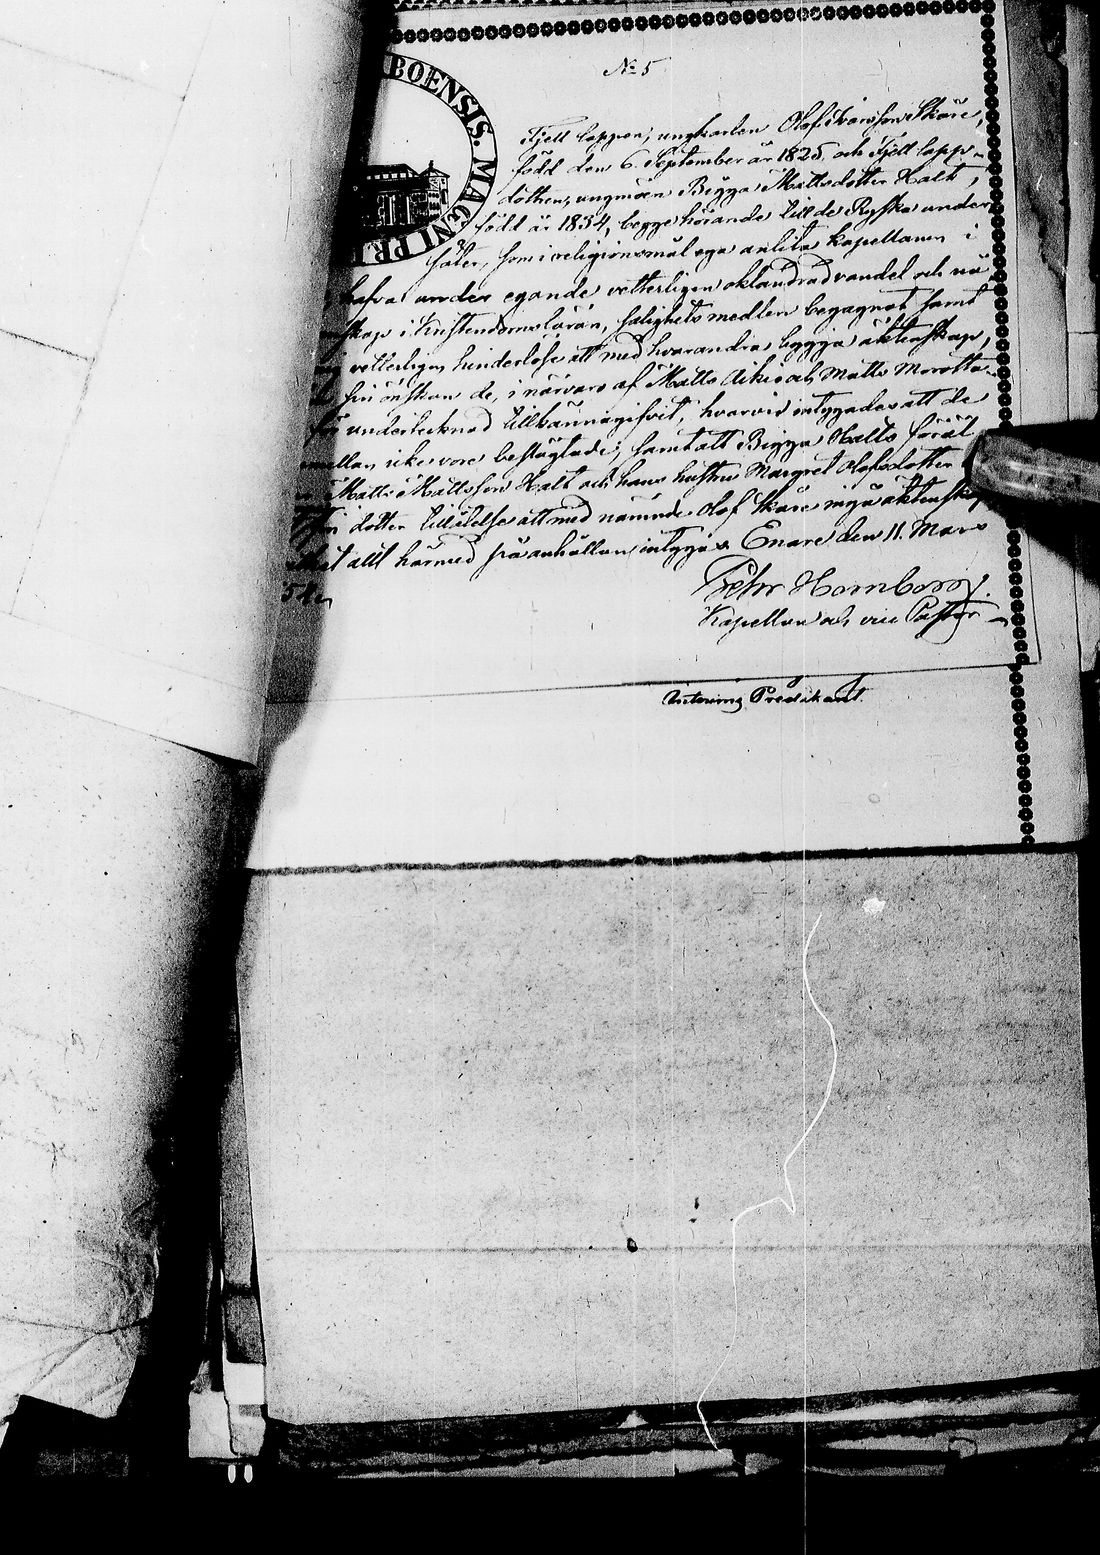 BOENSIS. MAGNI PR
№ 5
Fjell lappen, ungkarlen Olof Ivarsson Skåre,
född den 6 September år 1825, och Fjell lapp-
dottren, ungmön Begga Mattsdotter Halt,
född år 1834, begge hörande till de Ryska under
såter, som i religionsmål ega anlita kapellanen i
hafva under egande vetterligen oklandrad vandel och nö
skap i Kristendomsläran, salighets medlen begagnat samt
vetterligen hinderlöse att med hvarandra bygga äktenskap,
sin önskan de, i närvaro af Matts Aikio och Matts Morotta
undertecknad tillkännagifvit, hvarvid intygades att de
emellan icke vore beslägtade, samt att Begga Halts föräl
Matts Mattsson Halt och hans hustru Margret Olofsdotter
dotter tillåtelse att med nämnde Olof Skåre ingå äktenskap
allt härmed på anhållan intygas. Enare den 11 Mars
54.
Pehr Hornborg.
Kapellan och vice Pastor
Interims Predikant.